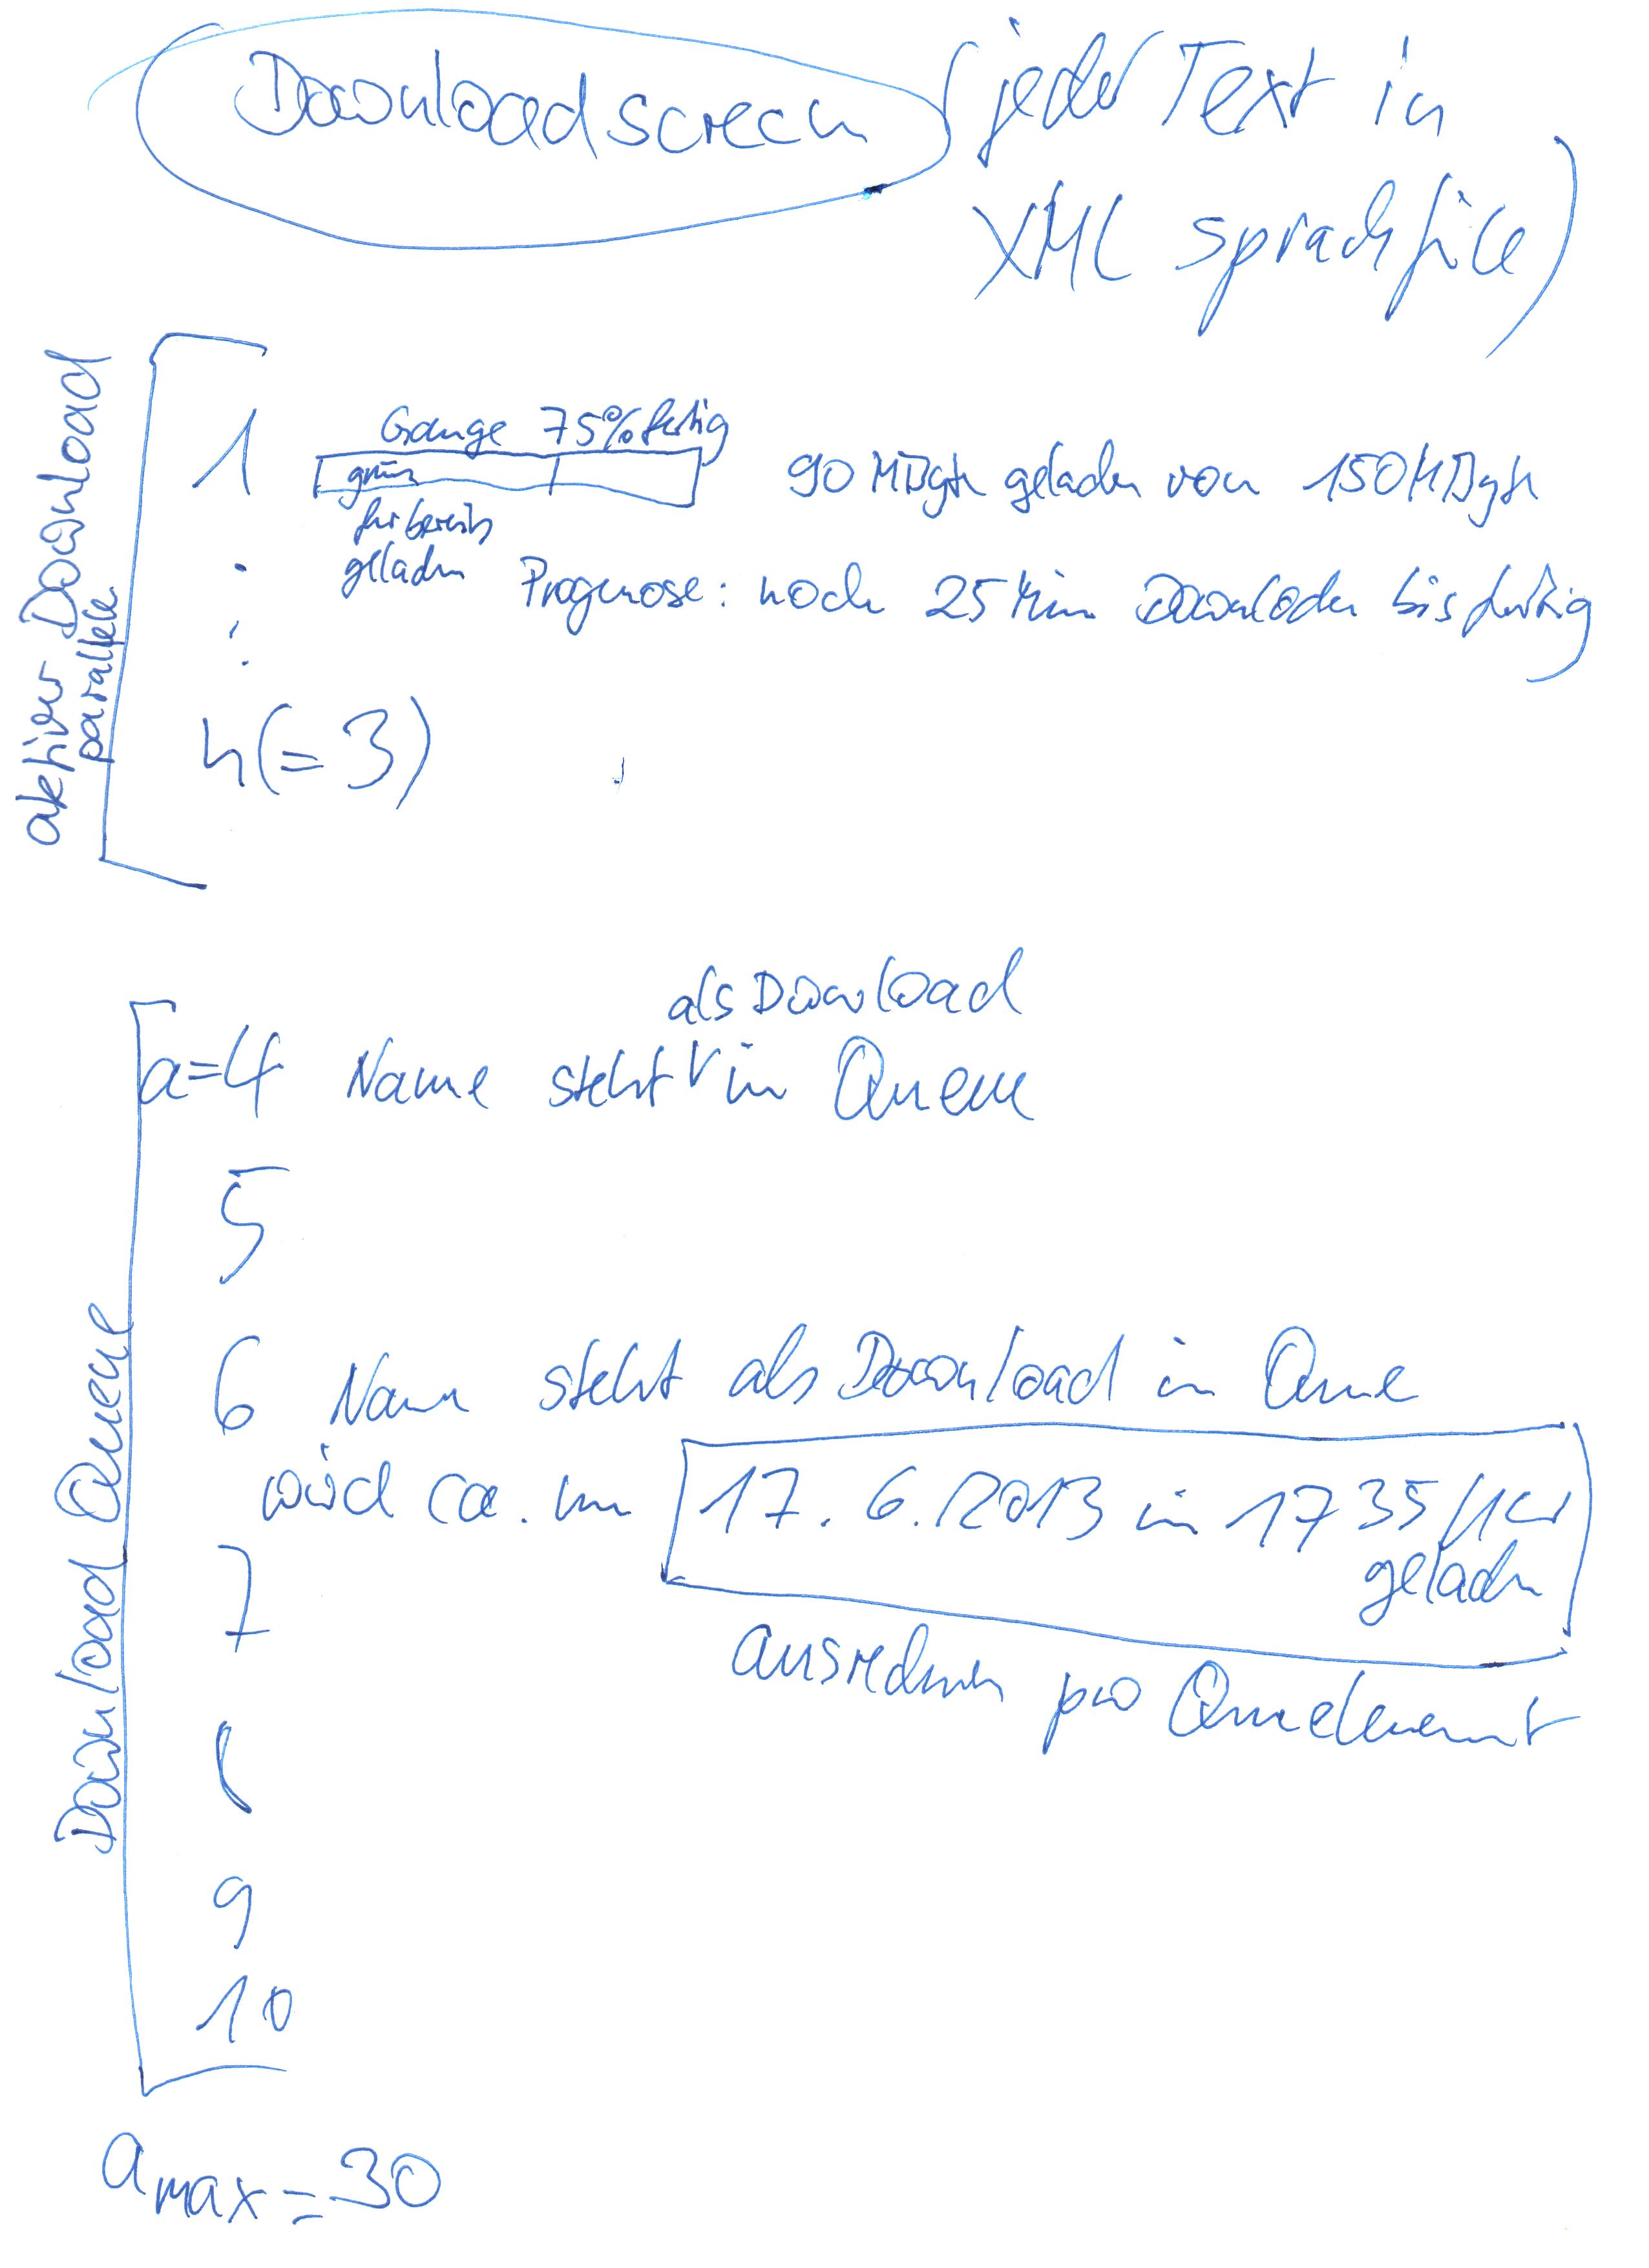 Downloadscreen
(jeder Text in
XML sprachfile)
aktive Download
parallele
1
Gauge 75% fertig
grün
für bereits
geladen
90 MByte geladen von 150 MByte
Prognose: noch 25 Min Downloaden bis fertig
n(=3)
Download Queue
als Download
a=4 Name steht in Queue
5
6 Name steht als Download in Queue
wird ca. um 17.6.2013 in 17 35 Uhr
geladen
7
ausrechnen pro Queuelement
9
10
amax=30